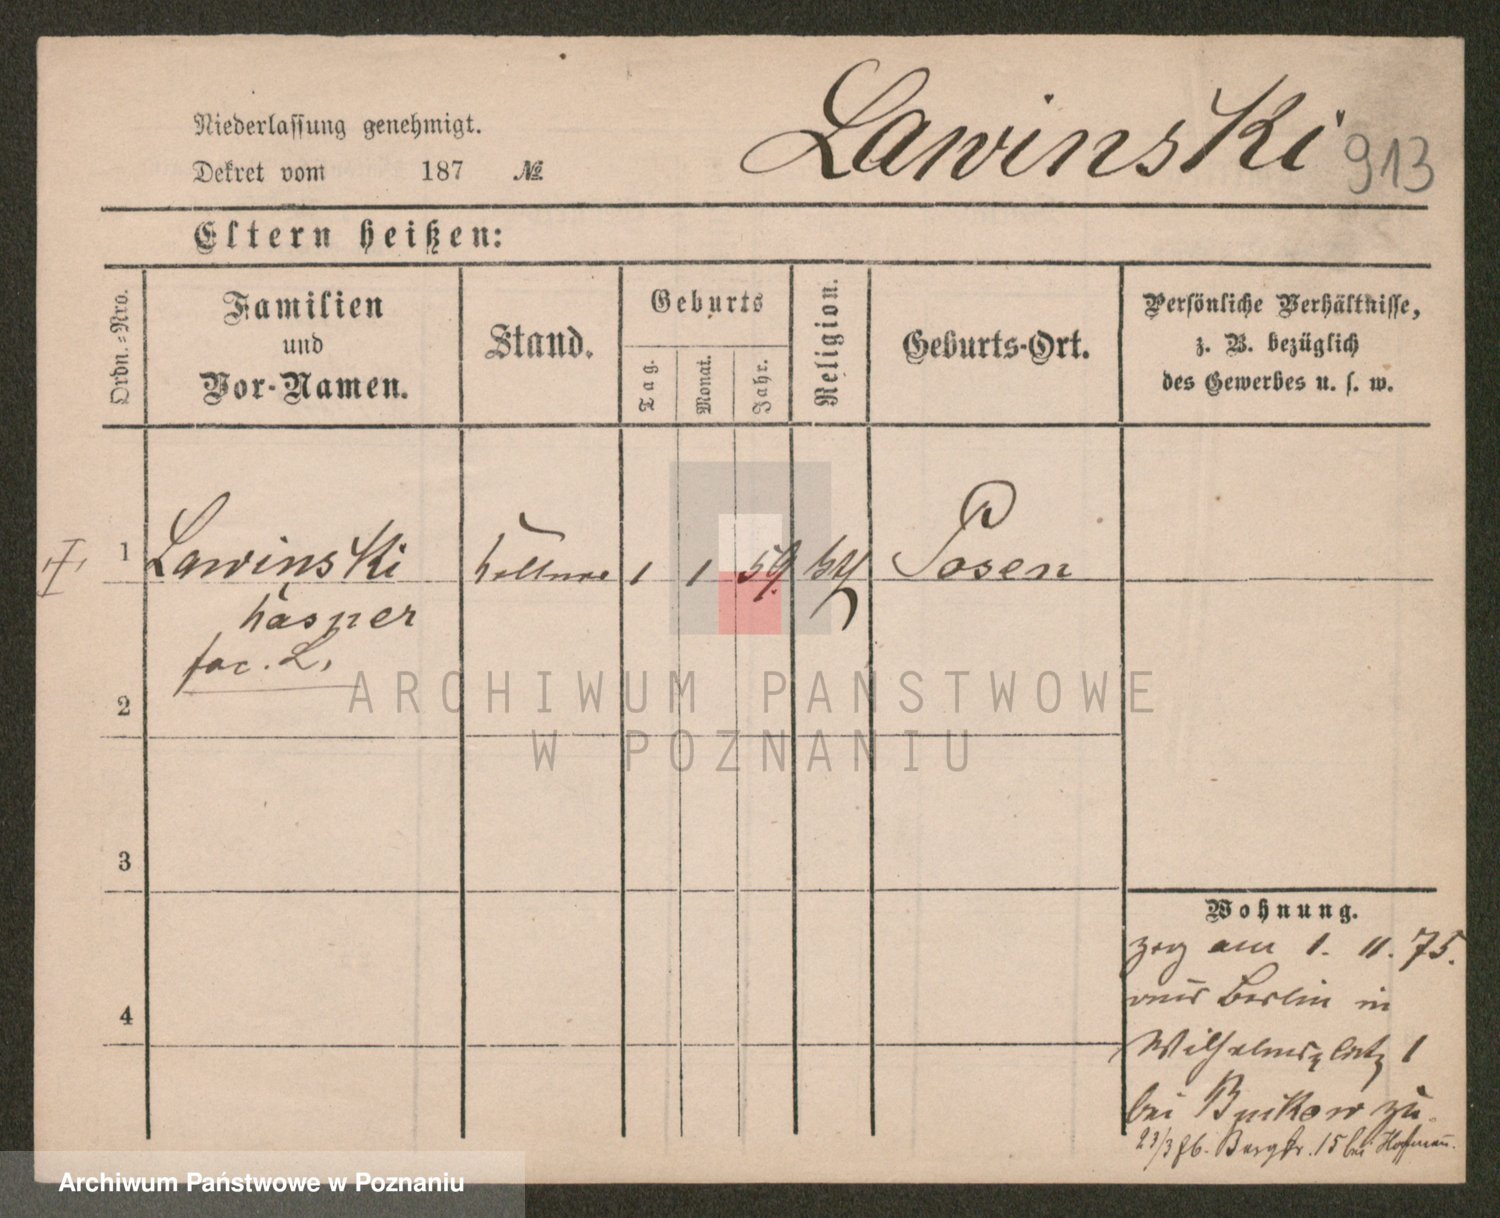 Niederlassung genehmigt.
Dekret vom 187 №
Lawinski
913
Eltern heißen:
Ordn.-Nro.
Familien
und
Vor-Namen.
Stand.
Geburts
Tag.
Monat.
Jahr.
Religion.
Geburts-Ort.
Persönliche Verhältnisse,
z. B. bezüglich
des Gewerbes u. s. w.
1 Lawinski Kellner 1 1 59. Posen
2
ARCHIWUM PAŃSTWOWE
W POZNANIU
3
4
Wohnung.
zog am 1. 11. 75.
aus Berlin in
Wilhelmsplatz 1
bei zu.
23/3 76. Bergstr. 15 bei Hoffmann.
Archiwum Państwowe w Poznaniu